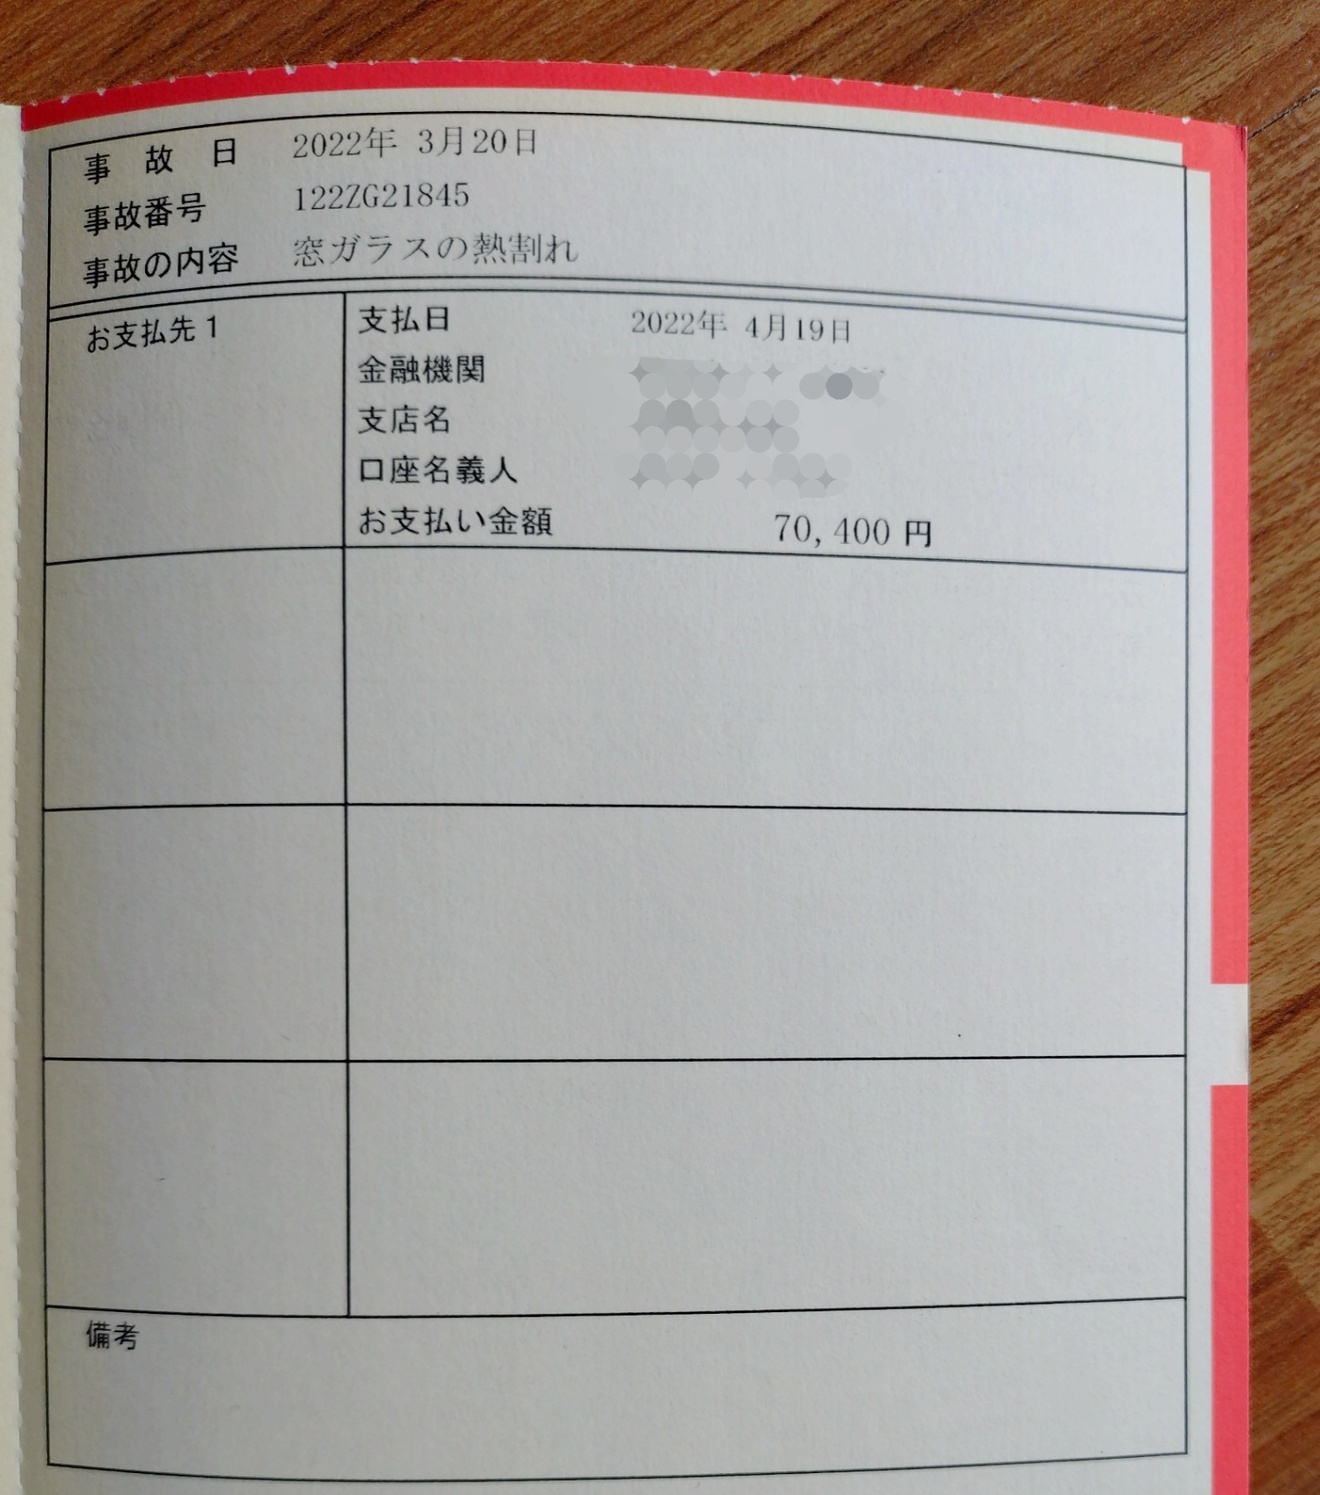 事 故 日 2022年 3月20日
事故番号 122ZG21845
事故の内容 窓ガラスの熱割れ
お支払先1 支払日 2022年 4月19日
金融機関
支店名
口座名義人
お支払い金額 70,400 円
備考